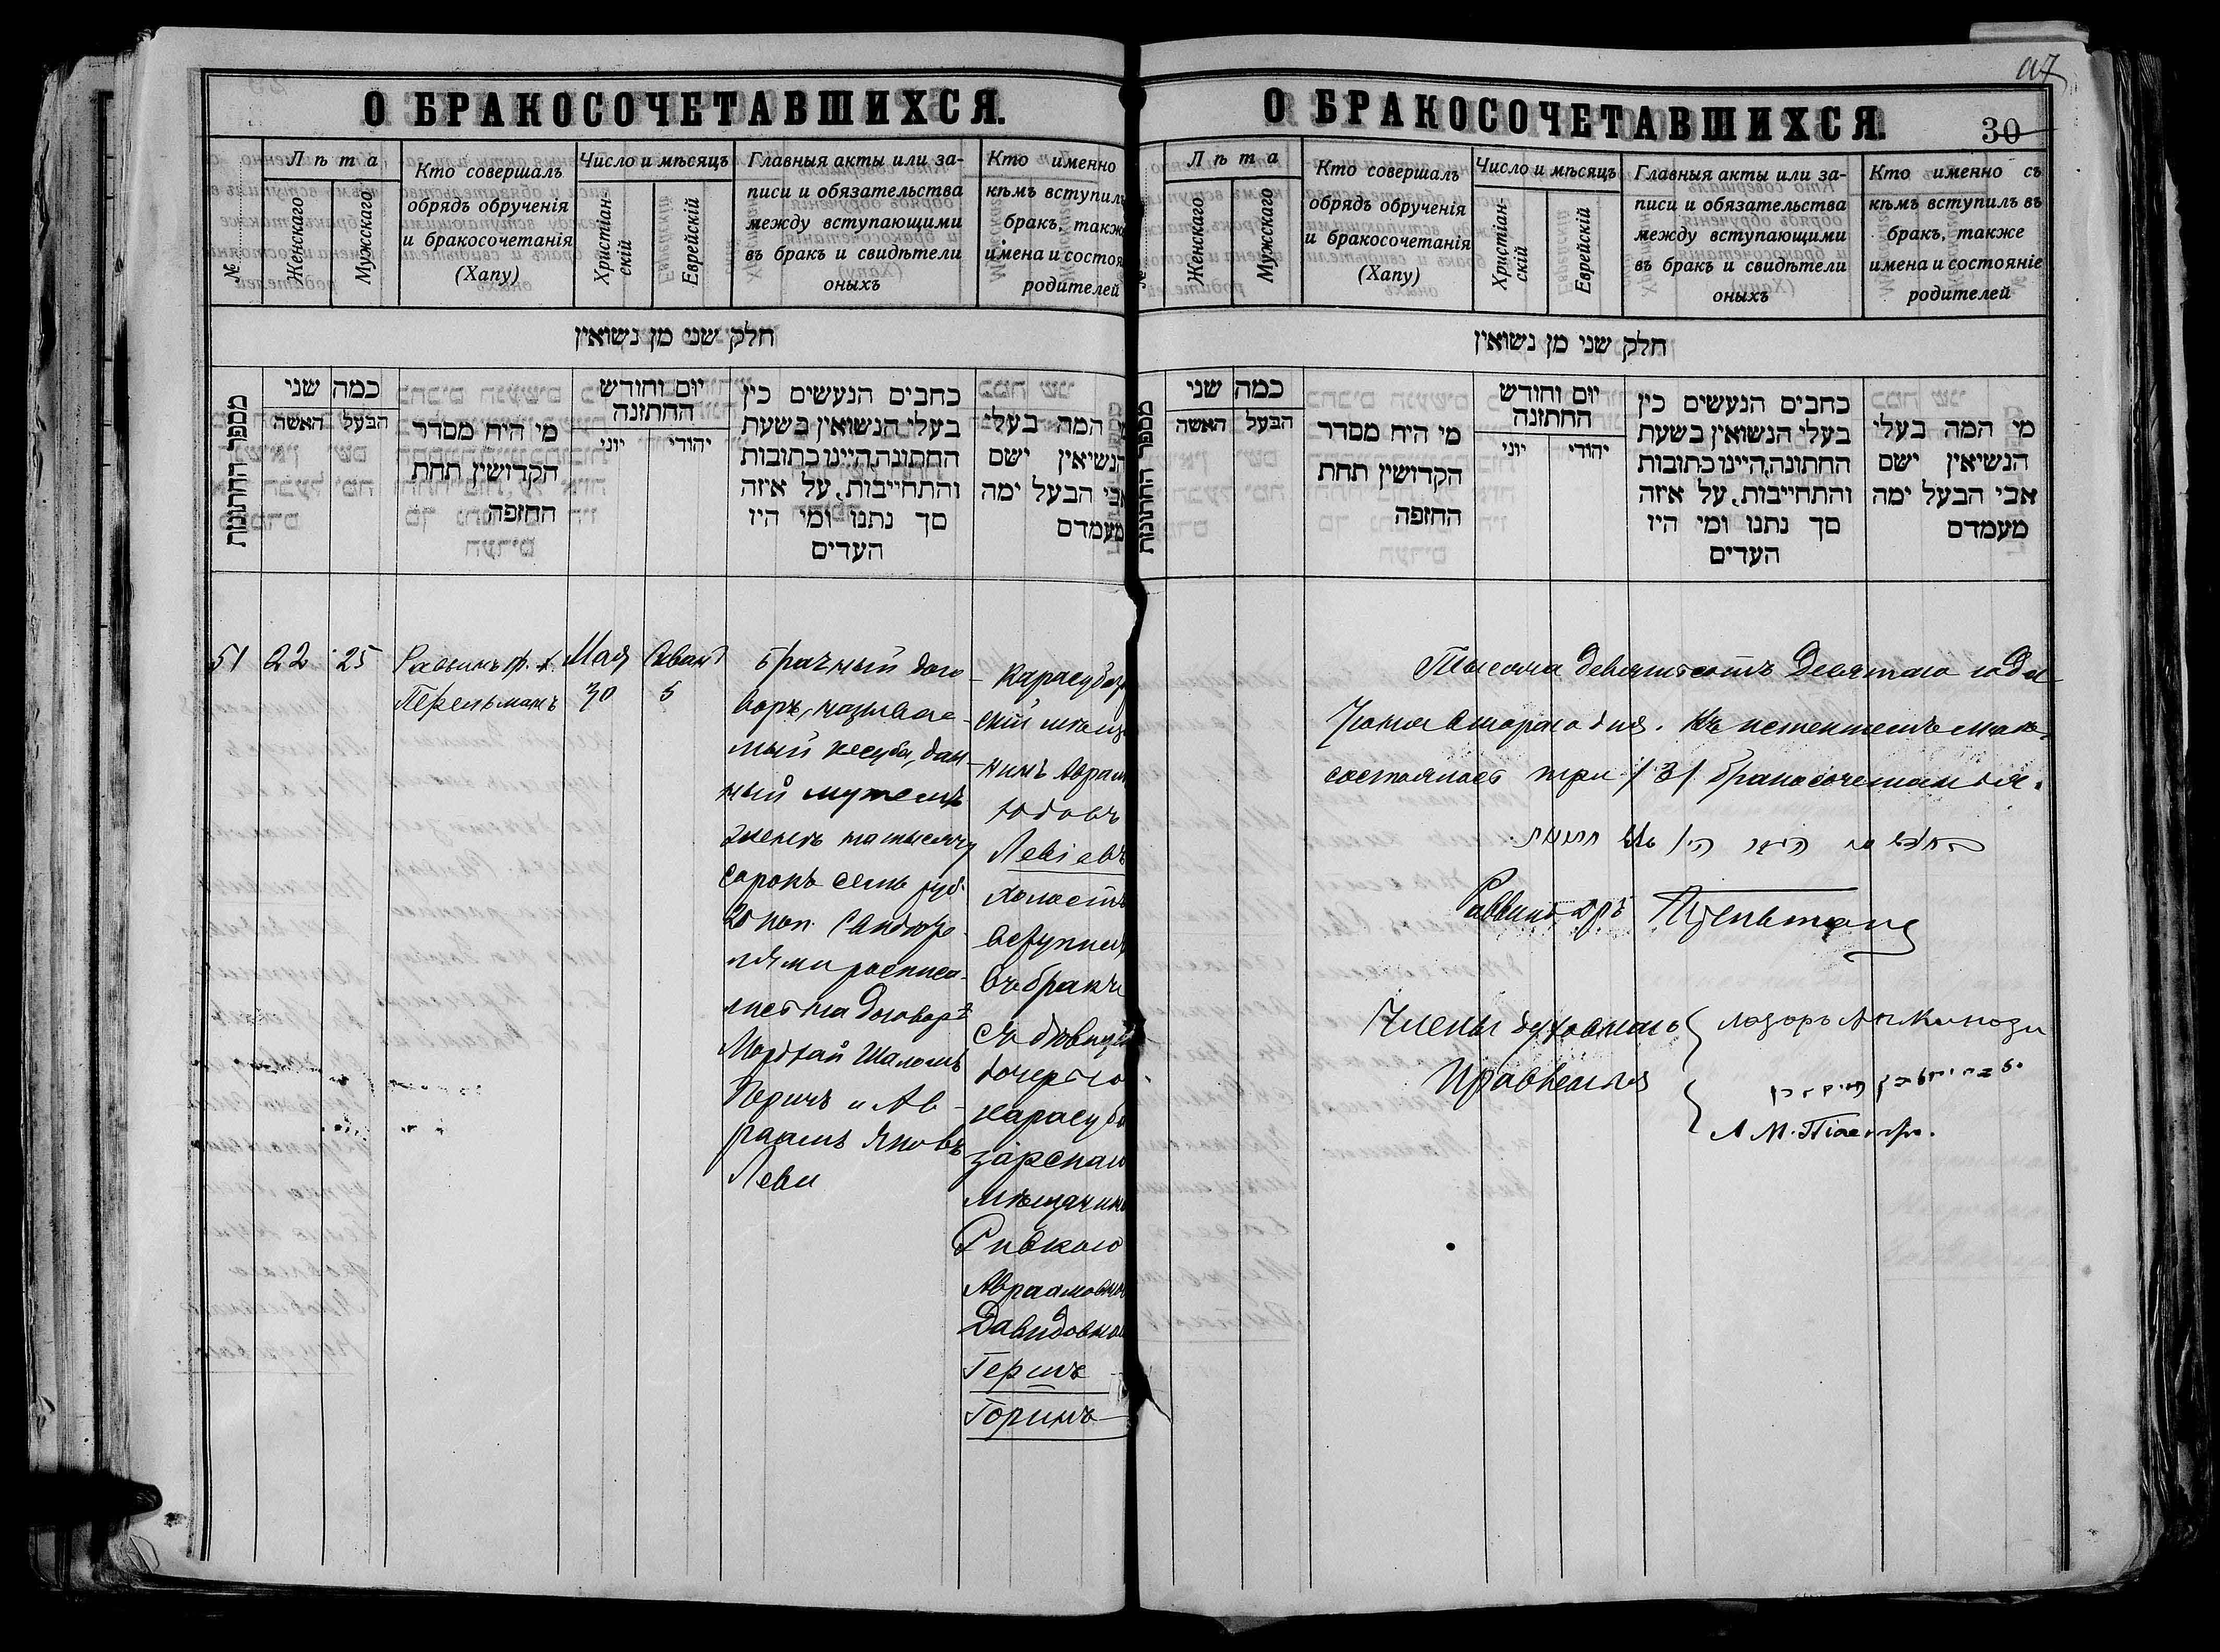 О БРАКОСОЧЕТАВШИХСЯ.
№
Лѣта
Женскаго
Мужскаго
Кто совершалъ
обрядъ обрученія
и бракосочетанія
(Хапу)
Число и мѣсяцъ
Христіан-
скій
Еврейскій
Главныя акты или за-
писи и обязательства
между вступающими
въ бракъ и свидѣтели
оныхъ
Кто именно
кѣмъ вступилъ
бракъ, также
имена и состоя
родителей
חלק שני מן נשואין
מספר החתונות
כמה שני
הבעל האשה
מי היח מסדר
הקדושין תחת
החופה
יום וחודש
החתונה
יהודי יוני
כתבים הנעשים כין
בעלי הנשואין בשעת
החתונה,היינו כתובות
והתחייבות, על איזה
סך נתנו ומי היו
העדים
המה בעלי
הנשיאין ישם
אבי הבעל ימה
מעמדם
51
22
25
Раввинъ
Перельманъ
Мая
30
Сиванъ
5
Брачный дого
воръ, называе-
мый кесуба, дан-
ный мужемъ
женѣ на тысячу
сорокъ семь руб.
20 коп. Свидѣте-
лями росписа-
лись на договорѣ
Мордхай Шаломъ
Перичъ и Ав-
раамъ Яковъ
Леви
Карасубаз
скій мѣща
нинъ Аврам
Юдовъ
Левіевъ
холостъ
вступилъ
въ бракъ
съ дѣвицей
дочерью
карасуба
зарскаго
мѣщанина
Ривкою
Авраамовн
Давидовной
Геринъ
Горинъ
117
О БРАКОСОЧЕТАВШИХСЯ.
30
Лѣта
Женскаго
Мужскаго
Кто совершалъ
обрядъ обрученія
и бракосочетанія
(Хапу)
Число и мѣсяцъ
Христіан-
скій
Еврейскій
Главныя акты или за-
писи и обязательства
между вступающими
въ бракъ и свидѣтели
оныхъ
Кто именно съ
кѣмъ вступилъ въ
бракъ, также
имена и состояніе
родителей
חלק שני מן נשואין
מספר החתונות
כמה שני
הבעל האשה
מי היח מסדר
הקדושין תחת
החופה
יום וחודש
החתונה
יהודי יוני
כתבים הנעשים כין
בעלי הנשואין בשעת
החתונה,היינו כתובות
והתחייבות, על איזה
סך נתנו ומי היו
העדים
מי המה בעלי
הנשיאין ישם
אבי הבעל ימה
מעמדם
Тысяча девятьсотъ десятаго года
Іюня втораго дня. Въ истекшемъ маѣ
состоялось три /3/ бракосочетанія.
Раввинъ др. Перельманъ
Члены духовнаго
Правленія
Лазарь
А М. Піастро.